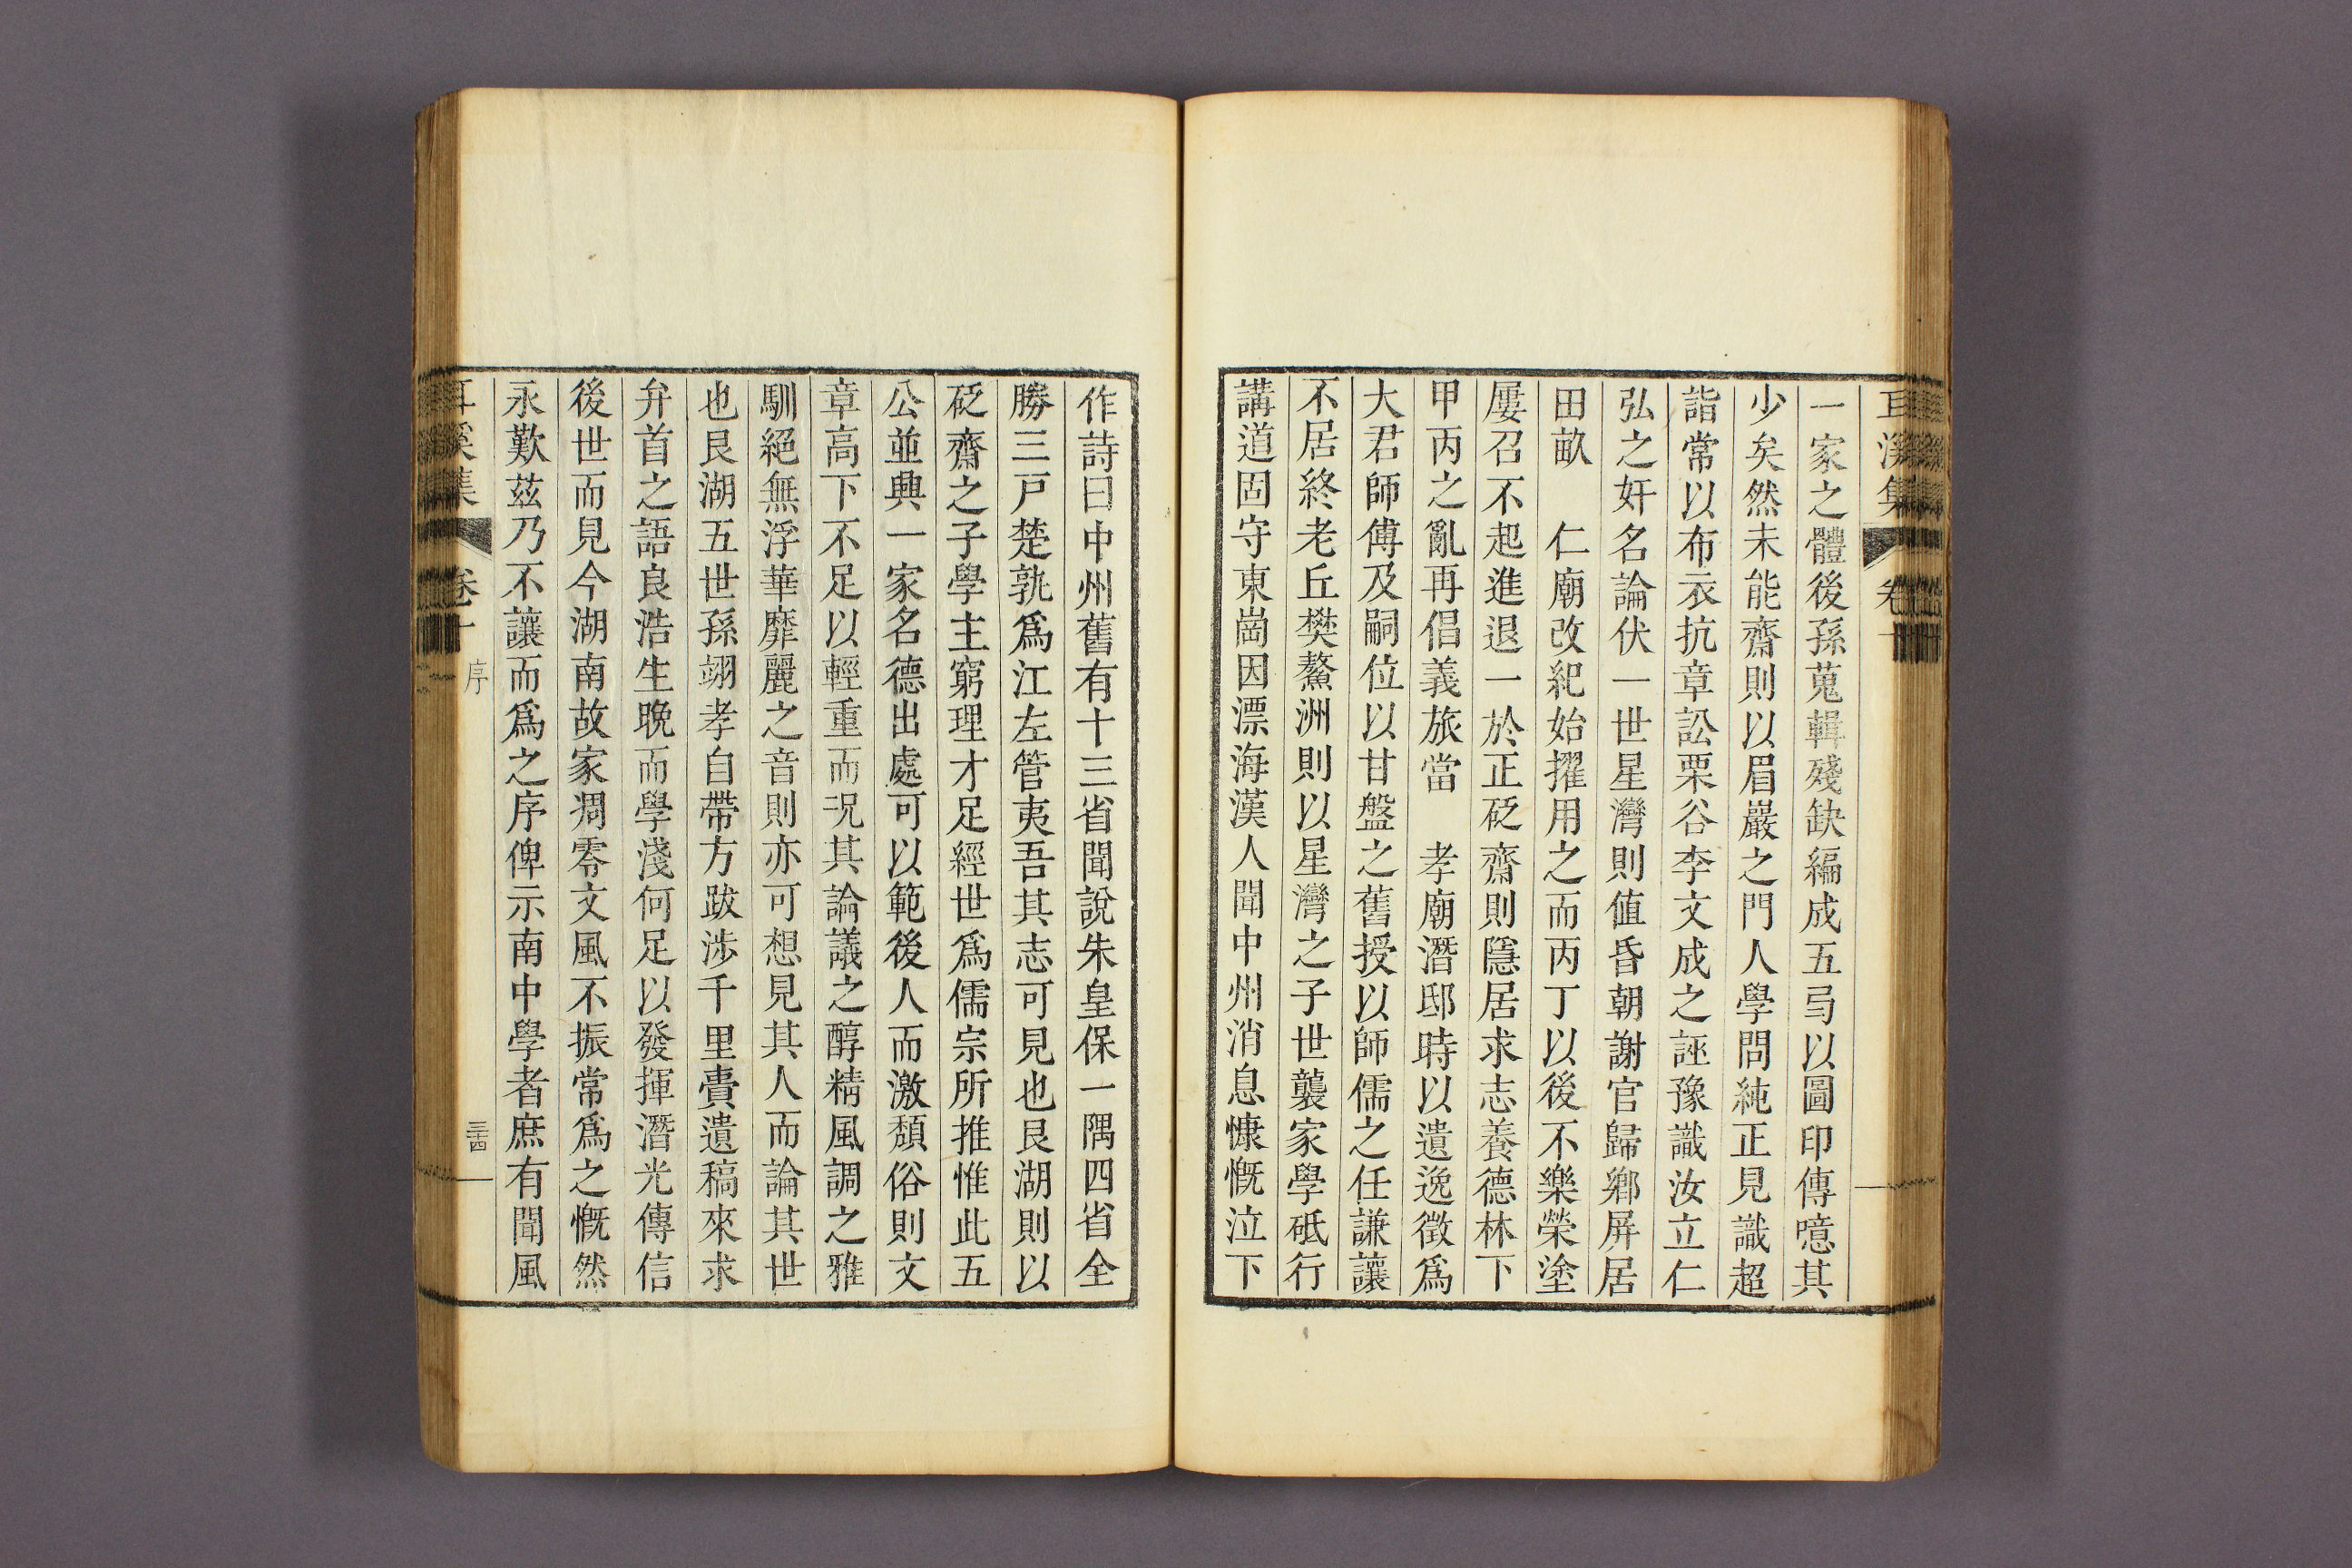 耳溪集 卷十
一家之體後孫蒐輯殘缺編成五㢧以圖印傳噫其
少矣然未能齋則以眉巖之門人學問純正見識超
詣常以布衣抗章訟栗谷李文成之誣豫識汝立仁
弘之奸名論伏一世星灣則值昏朝謝官歸鄉屏居
田畝　仁廟改紀始擢用之而丙丁以後不樂榮塗
屢召不起進退一於正砭齋則隱居求志養德林下
甲丙之亂再倡義旅當　孝廟潛邸時以遺逸徵爲
大君師傅及嗣位以甘盤之舊授以師儒之任謙讓
不居終老丘樊鰲洲則以星灣之子世襲家學砥行
講道固守東崗因漂海漢人聞中州消息慷慨泣下
作詩曰中州舊有十三省聞說朱皇保一隅四省全
勝三戸楚孰爲江左管夷吾其志可見也艮湖則以
砭齋之子學主窮理才足經世爲儒宗所推惟此五
公並興一家名德出處可以範後人而激頹俗則文
章高下不足以輕重而况其論議之醇精風調之雅
馴絕無浮華靡麗之音則亦可想見其人而論其世
也艮湖五世孫翊孝自帶方跋涉千里賷遺稿來求
弁首之語良浩生晩而學淺何足以發揮潛光傳信
後世而見今湖南故家凋零文風不振常爲之慨然
永歎茲乃不讓而爲之序俾示南中學者庶有聞風
耳溪集 卷十 序 三十四